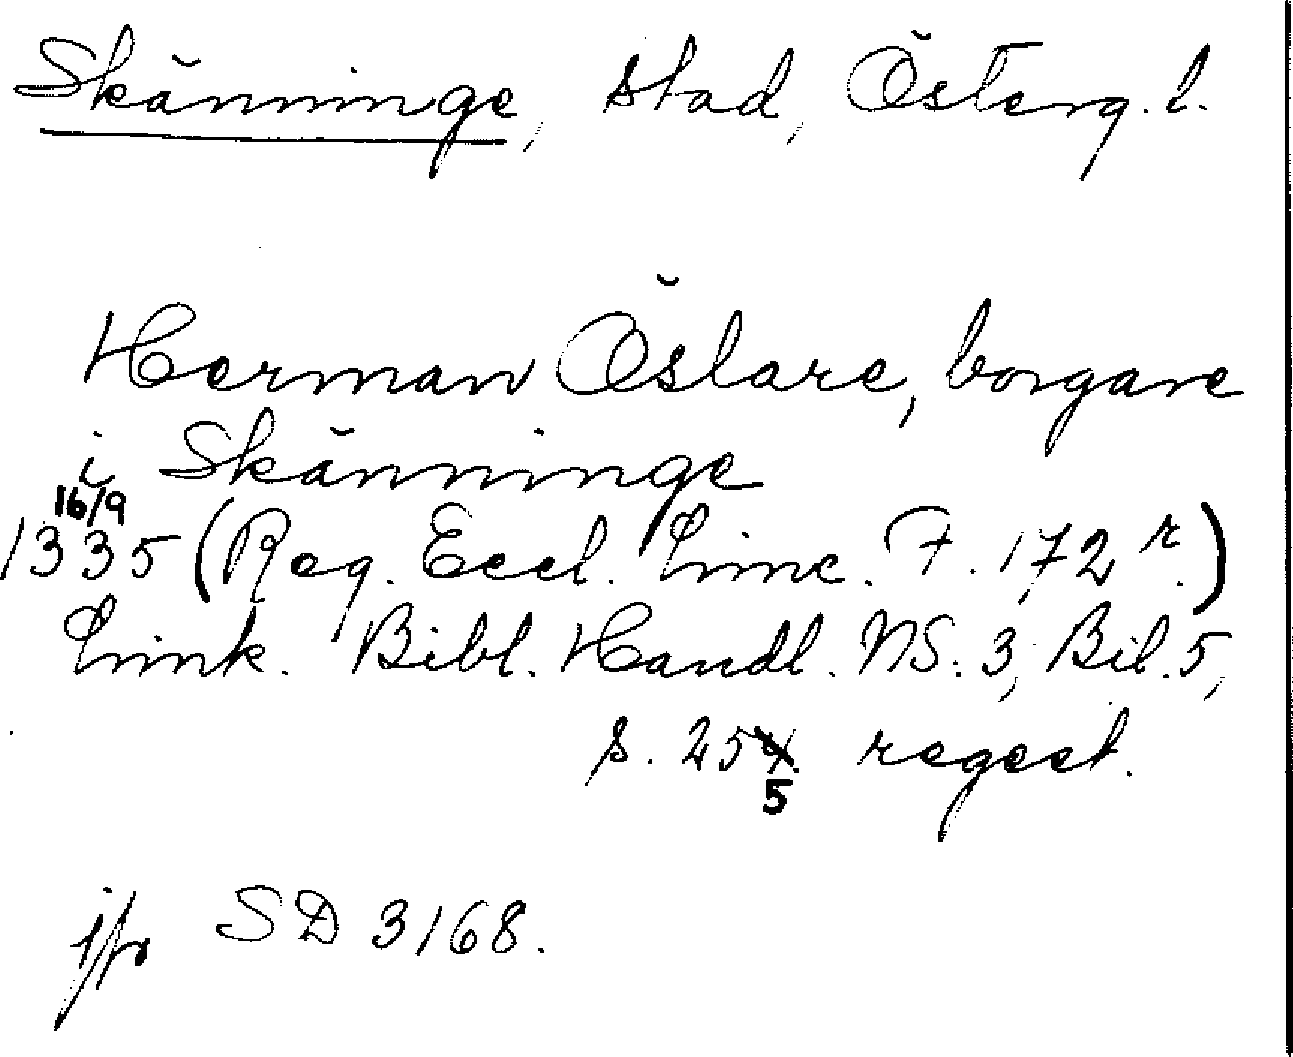 Skänninge, stad, Österg. l.
Herman Öslare, borgare
i Skänninge
16/9
1335 (Reg. Eccl. Linc. F. 172 r.)
Link. Bibl. Handl. NS. 3, Bil. 5,
s. 254. regest.
5
jfr SD 3168.